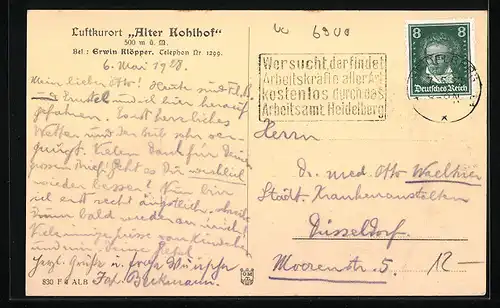 Luftkurort „Alter Kohlhof"
500 m ü. M.
Bes.: Erwin Klöpper. Telephon Nr 1299.
6. Mai 1928.
Mein lieber Otto! Heute sind
und wir hier herauf
gefahren. Es ist herrliches
Wetter und wir sind sehr ver-
gnügt. Vielen Dank für Deinen
Brief! Geht es Dir wirklich
wieder besser! Nun bin
ich erst recht ängstlich, schreibe
bald wieder an mich!
Viele innige Grüsse von
und
Herzl. Grüße u. frohe Wünsche
Joh. Beckmann.
830 F 4 ALB
6900
Wer sucht, der findet
Arbeitskräfte aller Art
kostenlos durch das
Arbeitsamt Heidelberg
8 8
Deutsches Reich
Herrn
Dr. med. Otto
Städt. Krankenanstalten
Düsseldorf.
Moorenstr. 5.
12 -